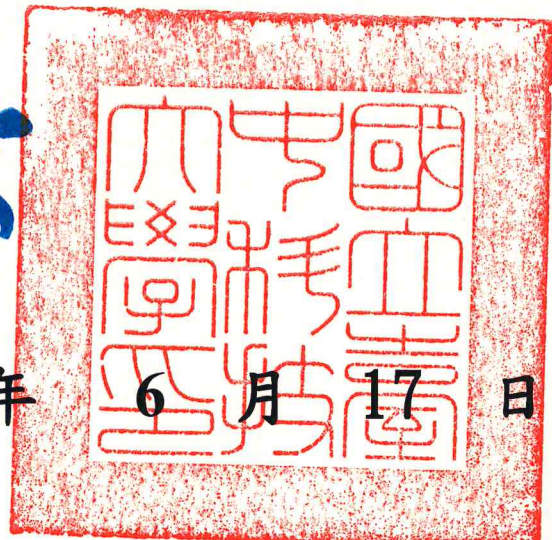 國立臺
中科技
大學印
年 6 月 17 日